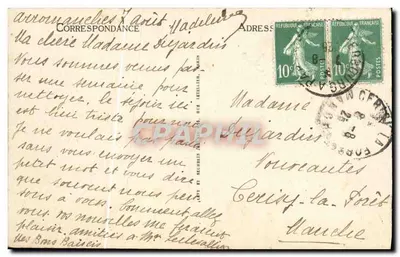 arromanches 7 Août Madeleine
CORRESPONDANCE
Ma chère Madame Dujardin
Nous sommes venus pas-
ser une semaine pour
nettoyer, le séjour ici
est bien triste pour nous
je ne voulais pas partir
sans vous envoyer un
petit mot et vous dire
que souvent nous pensons
à vous. Comment allez
vous, vos nouvelles me feraient
plaisir, amitiés à Mme
Des Bons Baisers
ADRES
RÉPUBLIQUE FRANÇAISE
10c POSTES
10c POSTES
Madame
Dujardin
Cerisy-la-Forêt
Manche
CERISY LA FORET
MANCHE